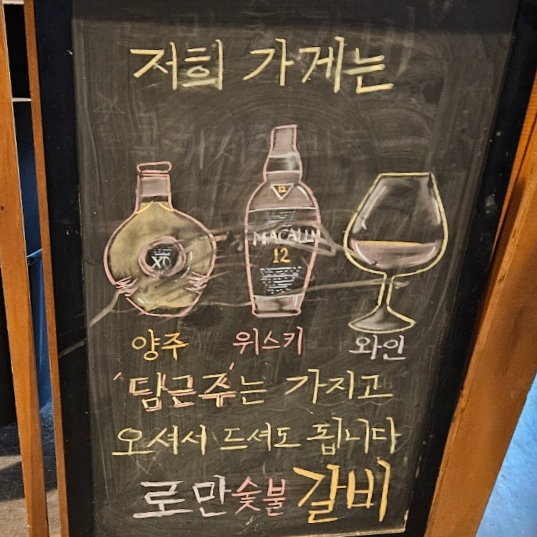 저희 가게는
12
XO
MACALLN
12
양주 위스키 와인
'담근주'는 가지고
오셔서 드셔도 됩니다
로만숯불갈비